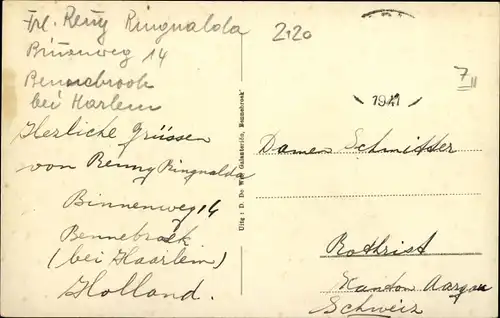 Frl. Reny Ringnalda
Binenweg 14
Bennebrook
bei Harlem
Herliche Grüssen
von Renny Ringnalda
Binnenweg 14
Bennebroek
(bei Haarlem)
Holland.
Uitg : D. De Galanterieën, Bennebroek
2120
7
1941
Damen Schmitter
Rothrist
Kanton Aargau
Schweiz